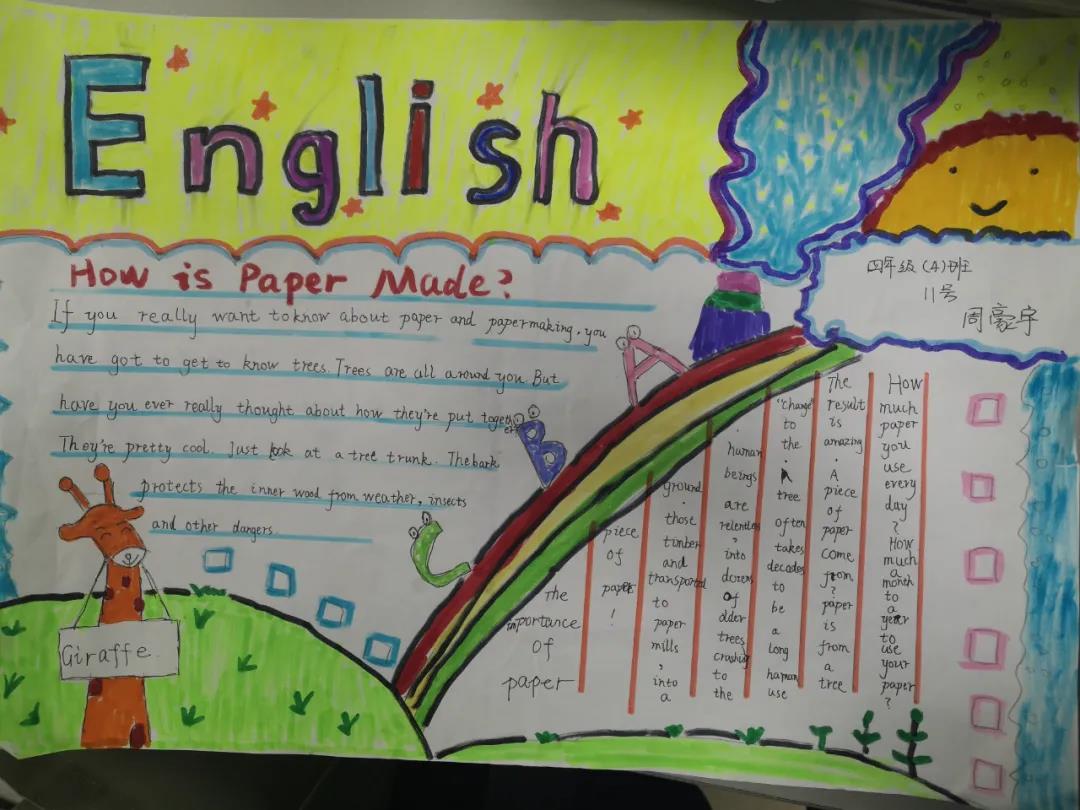 English
How is Paper Made?
If you really want to know about paper and papermaking, you
have got to get to know trees. Trees are all around you. But
have you ever really thought about how they're put together
They're pretty cool. Just look at a tree trunk. The bark
protects the inner wood from weather, insects
and other dangers.
Giraffe
A
B
C
四年级(4)班
11号
周豪宇
How much paper you use every day ? How much a month to a year to use your paper ?
The result is amazing . A piece of paper come from ? paper is from a tree
"change" to the . A tree often takes decades to be a long human use
. human beings are relentless , into dozens of older trees crashing to the
ground . those timber and transported to paper mills , into a
piece of paper !
The
importance
of
paper